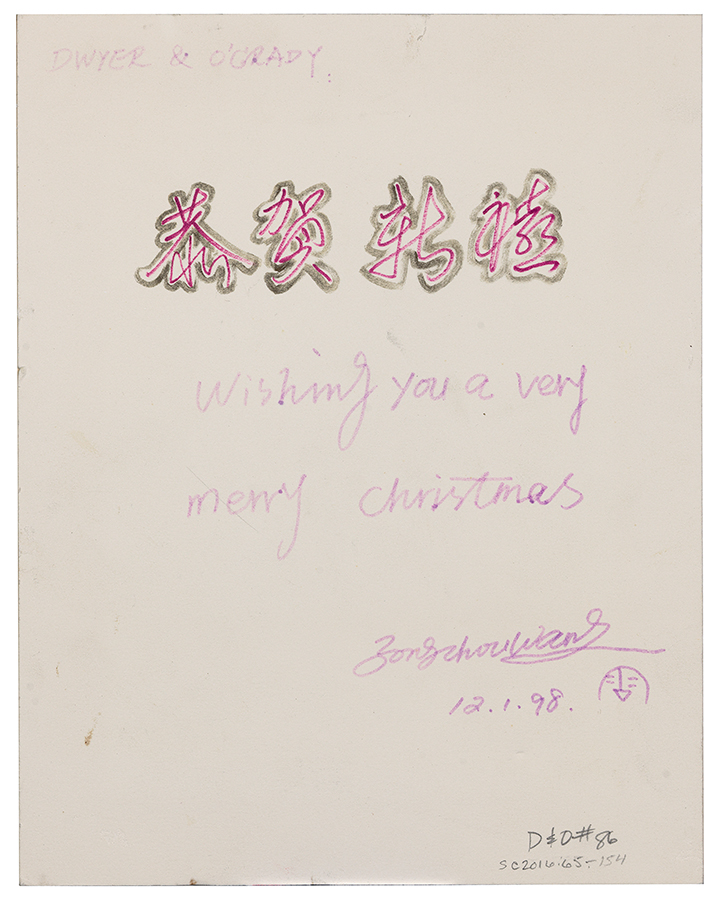 DWYER & O'GRADY
恭贺新禧
Wishing you a very
merry christmas
Zongzhou Wang
12.1.98.
D&O #86
SC2016:65-154